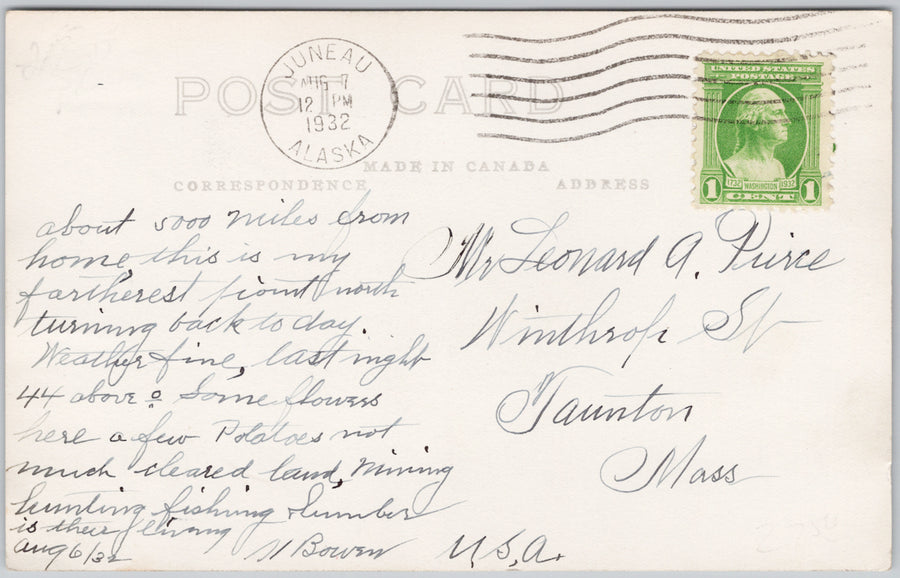 POST CARD
JUNEAU
AUG 7
12 PM
1932
ALASKA
UNITED STATES
POSTAGE
1732 WASHINGTON 1932
1 CENT 1
MADE IN CANADA
CORRESPONDENCE
ADDRESS
about 5000 miles from
home, this is my
fartherest point north
turning back to day.
Weather fine, last night
44 above o Some flowers
here a few Potatoes not
much cleared land, Mining
hunting fishing & lumber
is their living
Aug 6/32
Bowen
Mr Leonard A. Pierce
Winthrop St
Taunton
Mass
U.S.A.